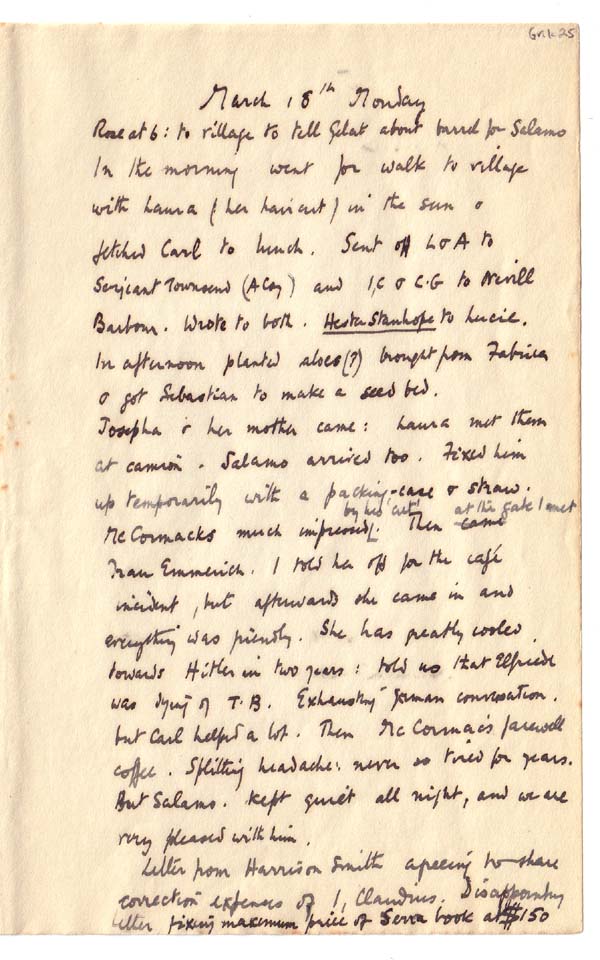 Gr.1.25
March 18th Monday
Rose at 6: to village to tell Gelat about barrel for Salamo
In the morning went for walk to village
with Laura (her haircut) in the sun &
fetched Carl to lunch. Sent off L & A to
Serjeant Townsend (A Coy) and I,C & C.G to Nevill
Barbour. Wrote to both. Hester Stanhope to Lucie.
In afternoon planted aloes (?) brought from Fabrica
& got Sebastian to make a seed bed.
Josepha & her mother came: Laura met them
at camion. Salamo arrived too. Fixed him
up temporarily with a packing-case & straw.
by his at the gate I met
McCormacks much impressed. Then came
Frau Emmerich. I told her off for the café
incident, but afterwards she came in and
everything was friendly. She has greatly cooled
towards Hitler in two years: told us that Elfriede
was dying of T.B. Exhausting German conversation.
but Carl helped a lot. Then McCormac's farewell
coffee. Splitting headache: never so tired for years.
But Salamo. kept quiet all night, and we are
very pleased with him.
Letter from Harrison Smith agreeing to share
correction expenses of I, Claudius. Disappointing
letter fixing maximum price of Serra book at $150